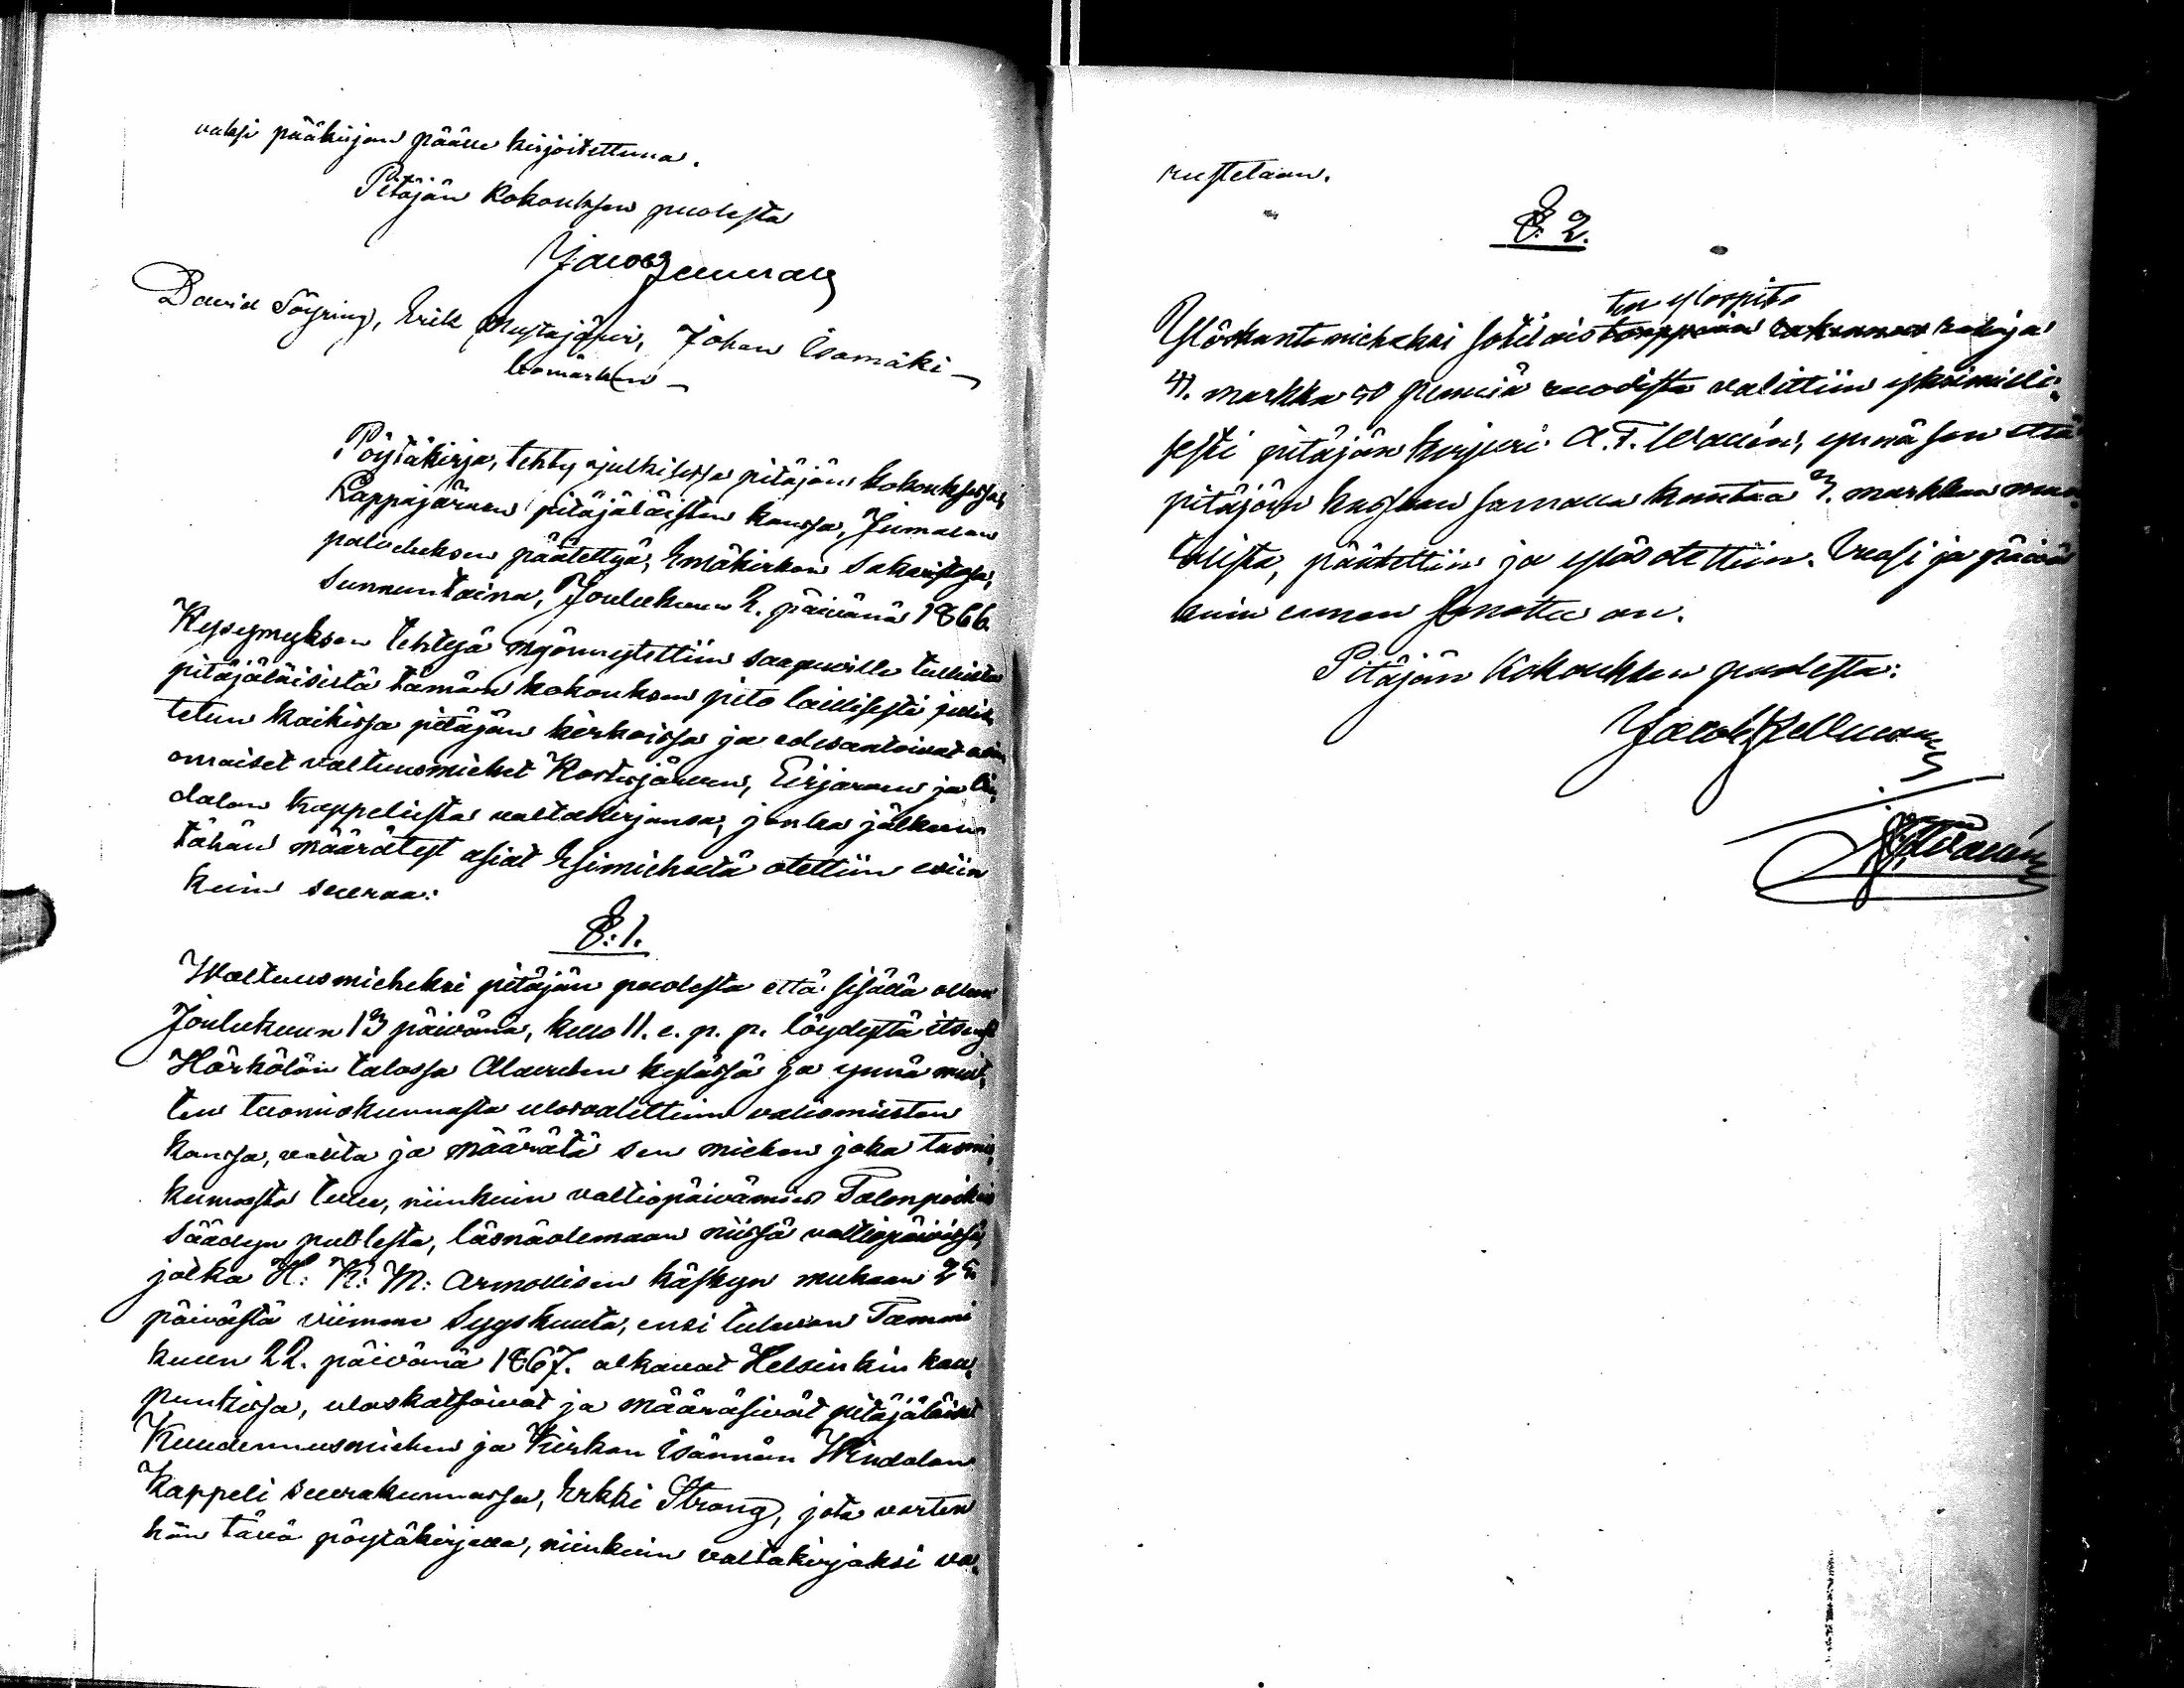 vaksi pääkirjan päälle kirjoitettuna.
Pitäjän Kokouksen puolesta
David Söyring, Erik Mustajärvi, Johan Isomäki
bomärken
Pöytäkirja, tehty julkisessa pitäjän kokouksessa
Lappajärven pitäjäläisten kanssa, Jumalan
palveluksen päätettyä, Emäkirkon Sakaristossa,
Sunnuntaina, Joulukuun 2. päivänä 1866.
Kysymyksen tehtyä myönnytettiin saapuville tulleilta
pitäjäläisistä tämän kokouksen pito laillisesti julis,
tetun kaikissa pitäjän kirkoissa ja edesantoivat asian
omaiset valtuusmiehet Kortesjärven, Evijärven ja Vin,
dalan kappelista valtakirjansa, jonka jälkeen
tähän määrätyt asiat Esimieheltä otettiin esiin
kuin seuraa:
§: 1.
Waltuusmieheksi pitäjän puolesta että sisällä olevan
Joulukuun 13 päivänä, kello 11. e. p. p. löydyttä itsensä
Härkölän talossa Alaveden kylässä ja ynnä muit,
ten tuomiokunnasta ulosvalittuin valiomiesten
kanssa, valita ja määrätä sen miehen joka tuomio,
kunnasta tulee, niinkuin valtiopäivämies Talonpoikais
Säädyn puolesta, läsnäolemaan niissä valtiopäivissä,
jotka H: K: M: Armollisen käskyn mukaan
päivästä viimme Syyskuuta, ensi tulevan Tammi
kuun 22. päivänä 1867. alkavat Helsinkin kau,
punkissa, uloskatsoivat ja määräsivät pitäjäläiset
Kuudennusmiehen ja Kirkon Isännän Windalan
Kappeli seurakunnassa, Erkki Strang, jota varten
hän tällä pöytäkirjalla, niinkuin valtakirjaksi va,
rustetaan.
§: 2.
ten ylöspito
Ylöskantomieheksi sotilaistorppain rakennus rahoja
4. markka 50 penniä ruodista valittiin yksimieli,
sesti pitäjän kirjuri A. F. Wallén, ynnä sen että
pitäjän kustan samalla kantaa 3. markkaa
päätettiin ja ylös otettiin. Vuosi ja päivä
kuin ennen sanottu on.
Pitäjän Kokouksen puolesta:
Jacob Hellman
A F Wallén